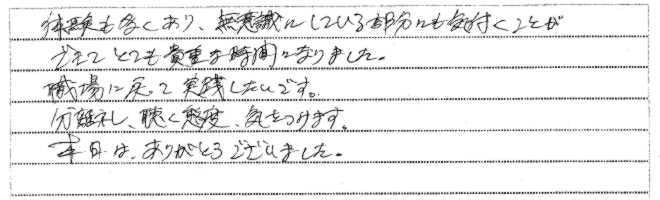 体験も多くあり、無意識にしている部分にも気付くことが
できてとても貴重な時間になりました。
職場に戻って実践したいです。
分離礼、聴く態度、気をつけます。
本日は、ありがとうございました。